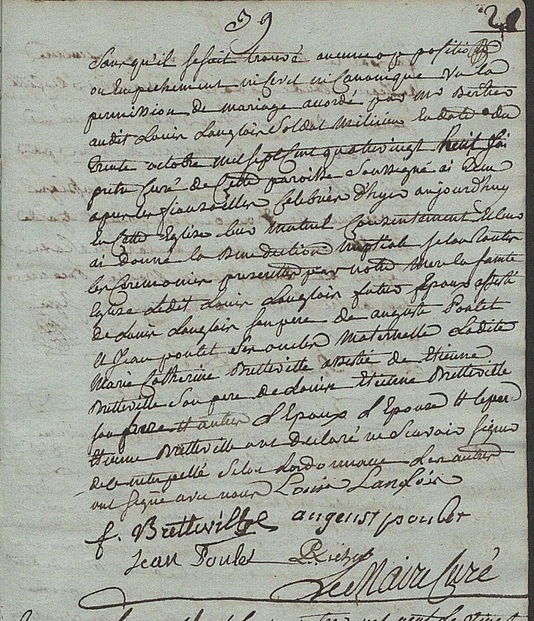 39
Sans qu'il se soit trouvé aucune opposition
ou Empechement ni civil ni Canonique vu la
permission de mariage accordé par mr Berthier
audit Louis Langlois Soldat milicien En date du
trente octobre mil sept cent quatre vingt huit J'ai
pretre Curé de Cette paroisse Soussigné ai Reçu
apres les fiançailles Celebrées d'hyer aujourd'huy
En Cette Eglise Leur mutuel Consentement Et leur
ai Donné la Benediction nuptiale selon toutes
les Ceremonies prescrites par notre mere la Sainte
Eglise Ledit Louis Langlois futur Epoux assisté
de Louis Langlois son pere de auguste Poulet
et Jean poulet ses oncles Maternelle Ladite
Marie Catherine Bretteville assistée de Etienne
Bretteville Son pere de Louis Etienne Bretteville
son frere Et autres d'Epoux d'Epouse Et le pere
Etienne Bretteville ont declaré ne Scavoir Signer
de ce interpellé selon Lordonnance Les autres
ont Signé avec nous Louis Langlois
f. Bretteville augenst poulet
Jean Poulet
Le Maire Curé